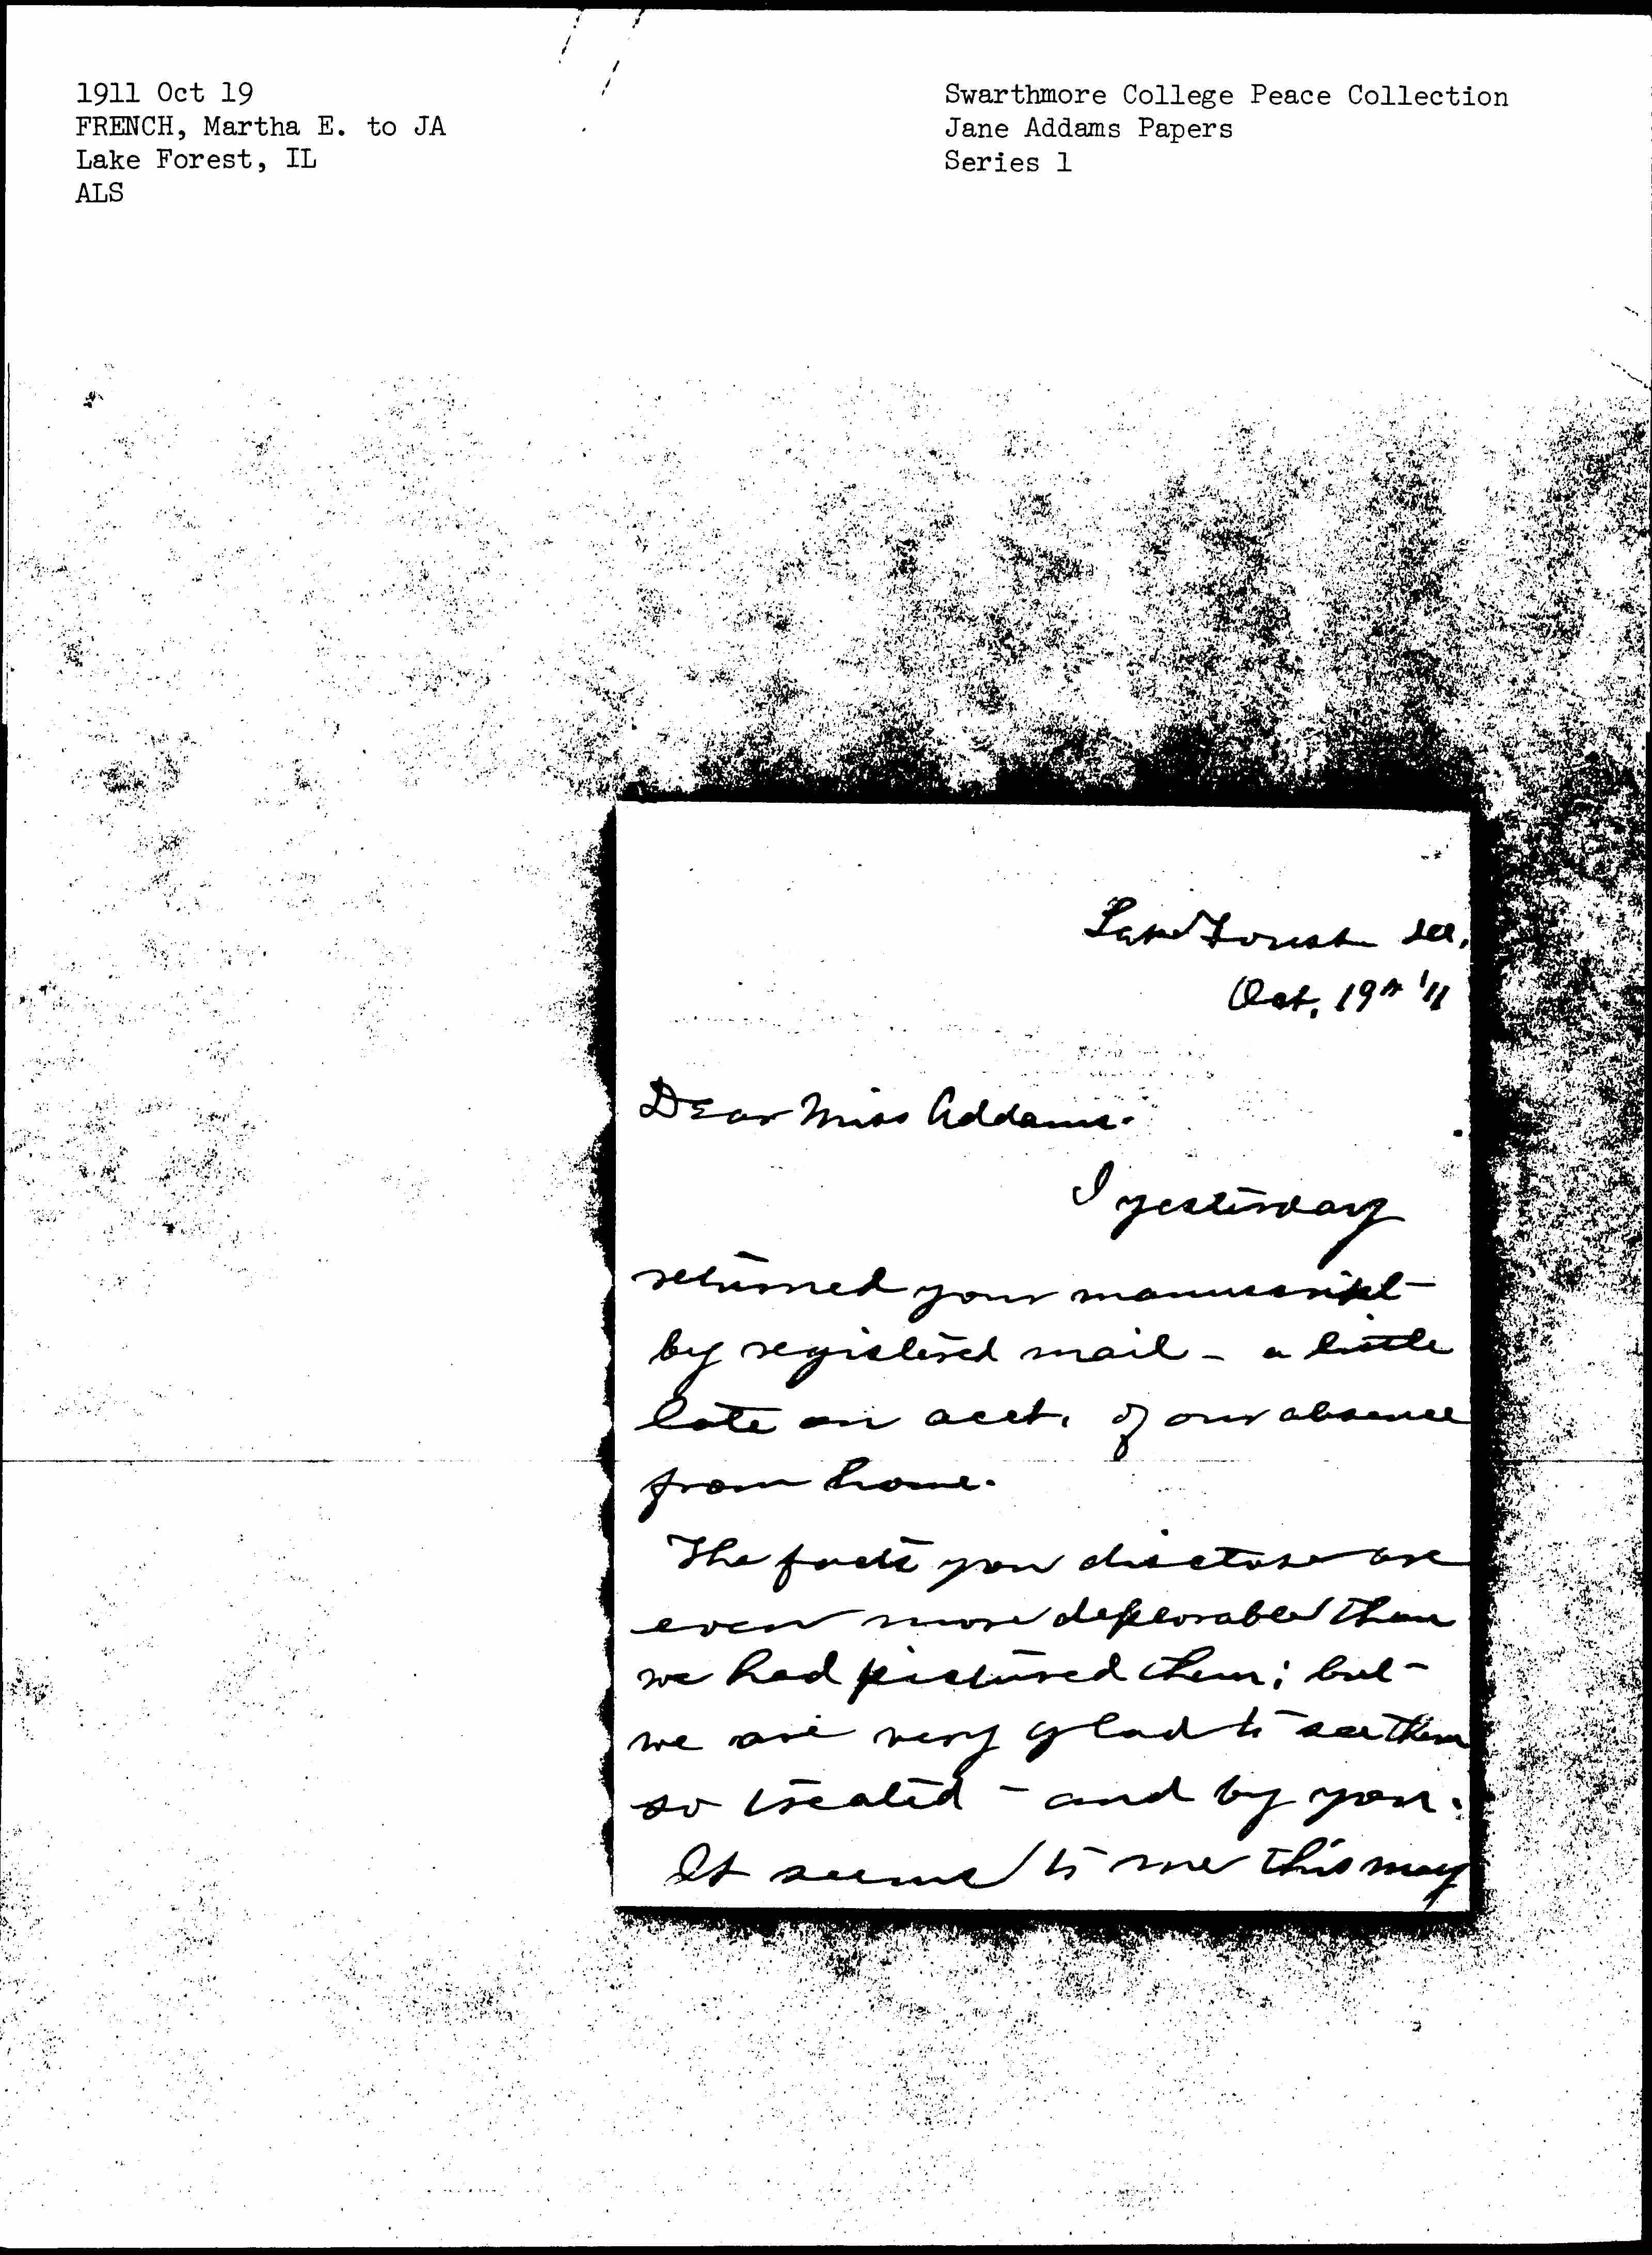 1911 Oct 19
FRENCH, Martha E. to JA
Lake Forest, IL
ALS
Swarthmore College Peace Collection
Jane Addams Papers
Series 1
Lake Forest Ill,
Oct. 19th '11
Dear Miss Addams.
I yesterday
returned your manuscript
by registered mail - a little
late on acct. of our absence
from home.
The facts you disclose are
even more deplorable than
we had pictured them; but
we are very glad to see them
so treated - and by you.
It seems to me this may